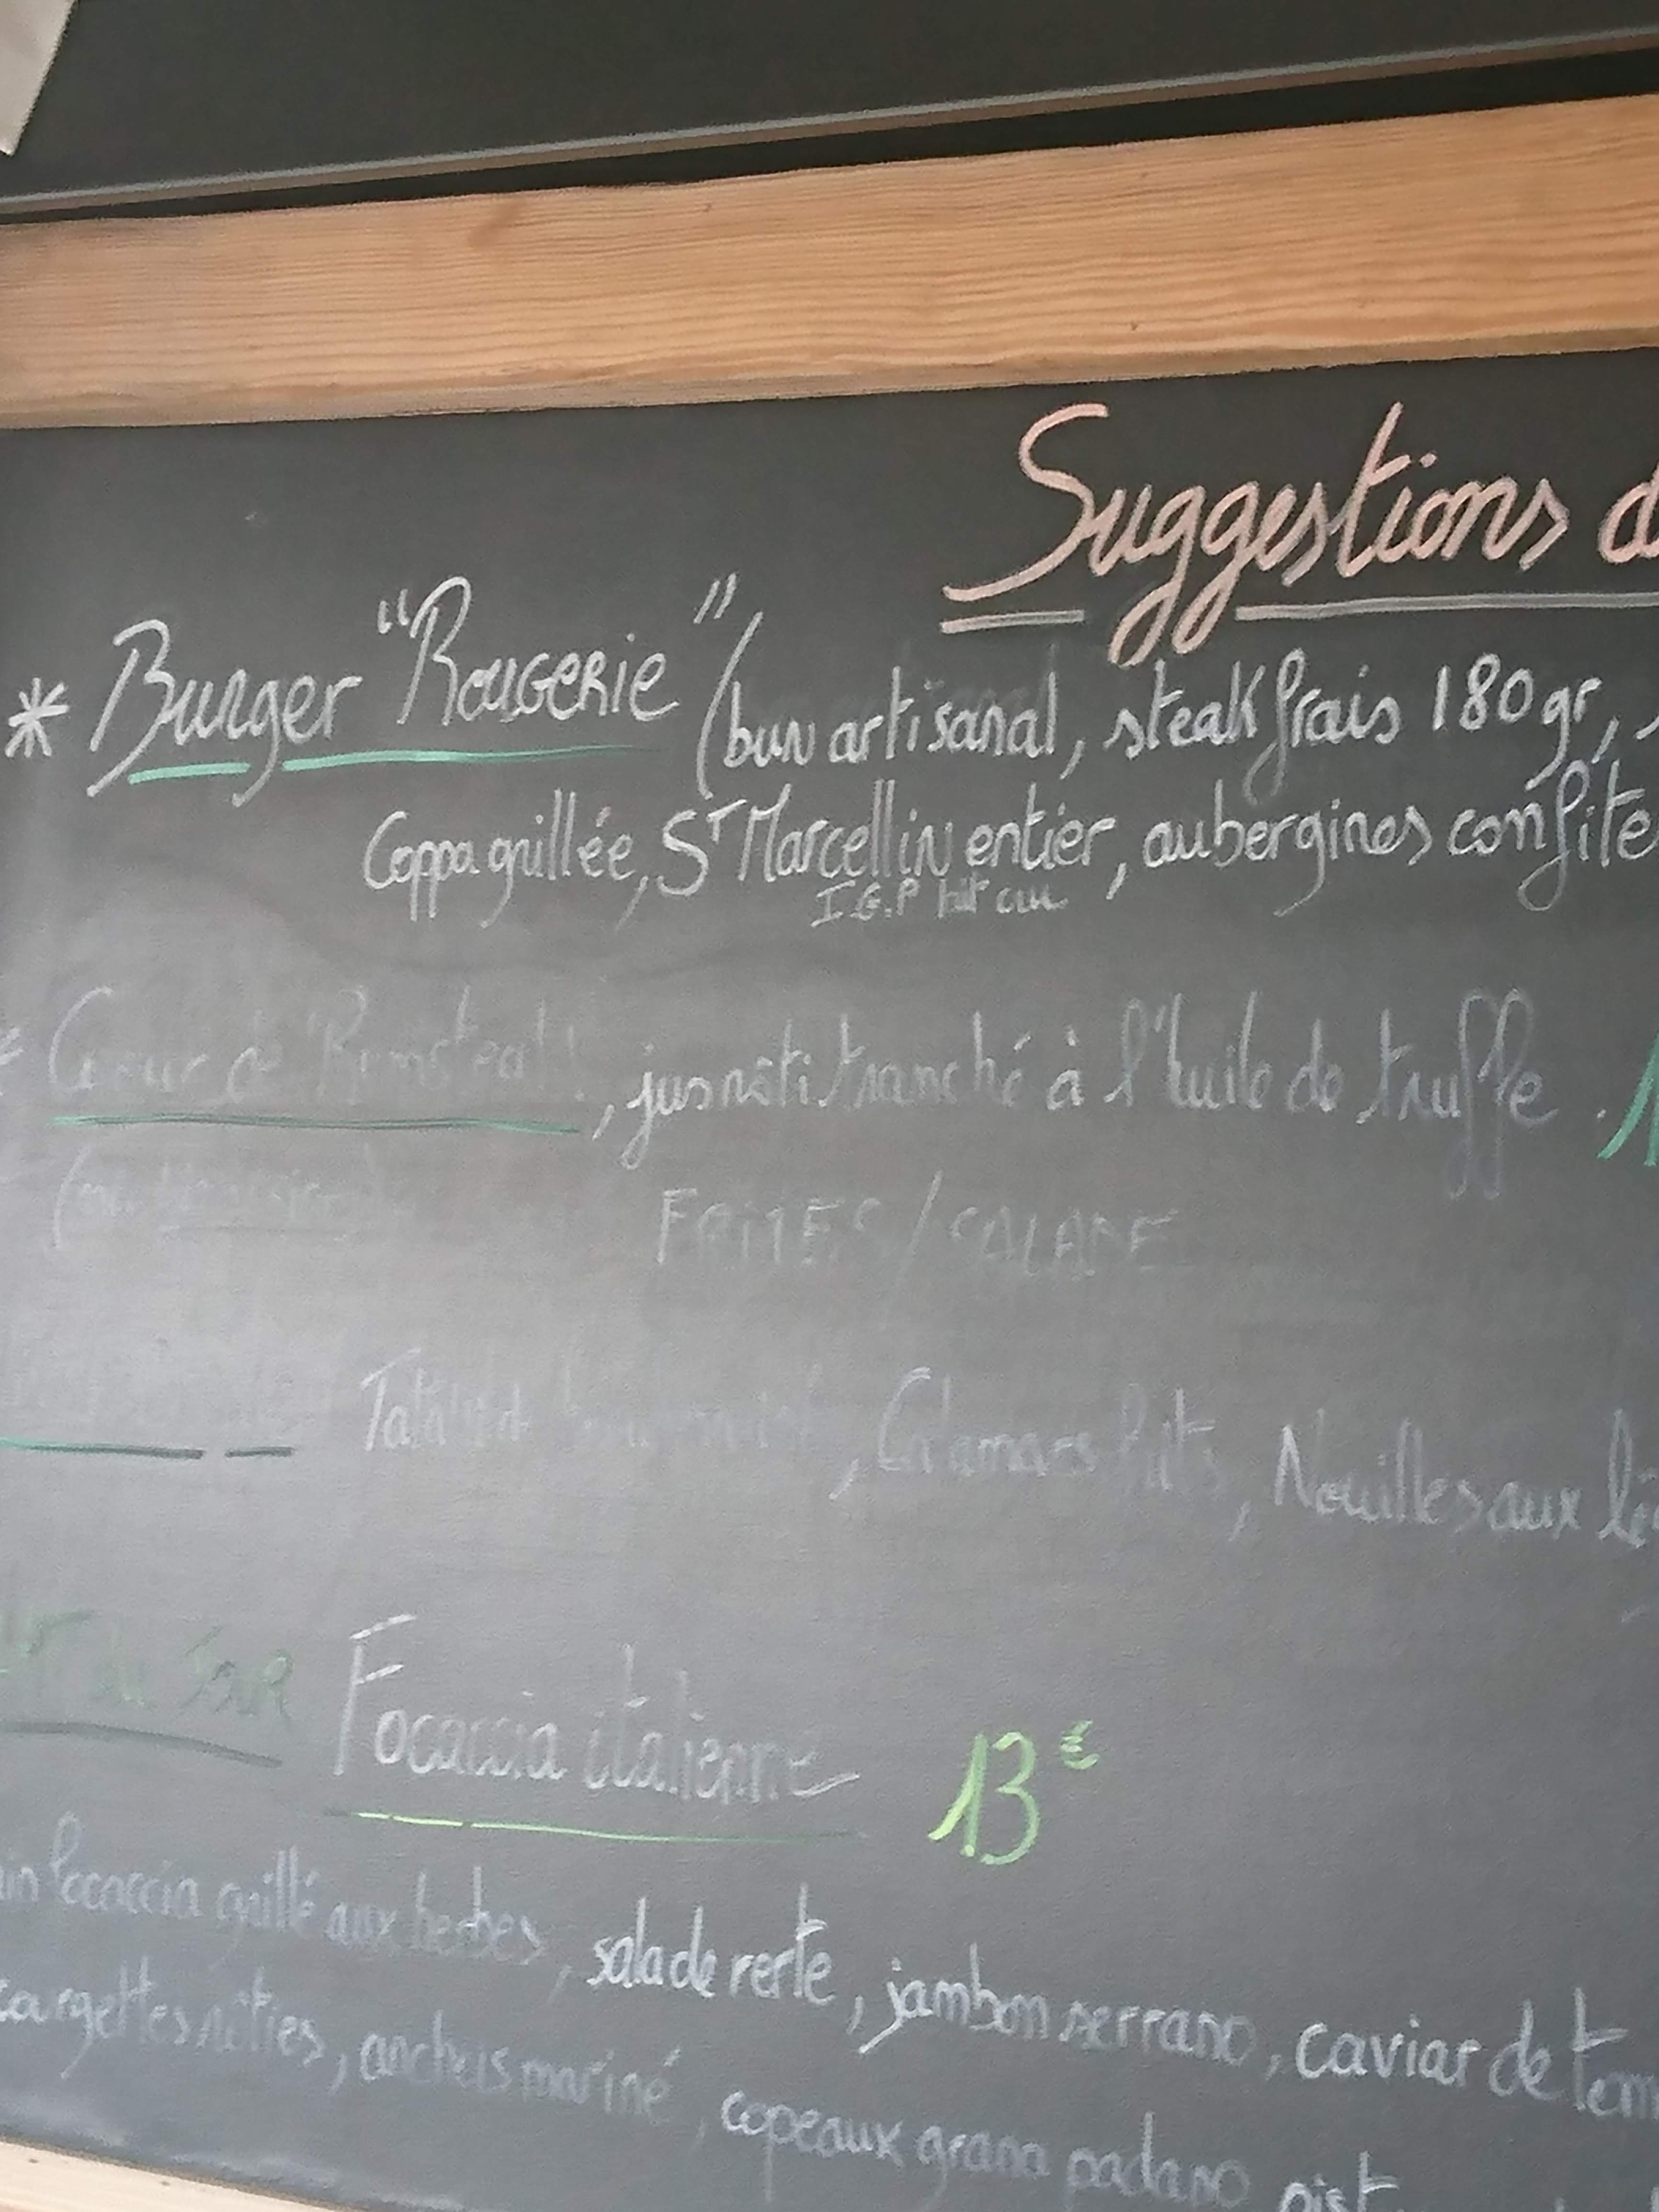 Suggestions d
* Burger "Rougerie" (bun artisanal, steak frais 180 gr,
Coppa grillée, St Marcellin entier, aubergines confite
I.G.P lait cru
* Coeur de Rumsteak, jus rôti tranché à l'huile de truffe. 1
FRITES / SALADE
, Calamars frits, Nouilles aux lé
du Jour Focaccia italienne 13€
ain focaccia grillé aux herbes, salade verte, jambon serrano, caviar de tom
courgettes rôties, anchois mariné, copeaux grana padano, pist